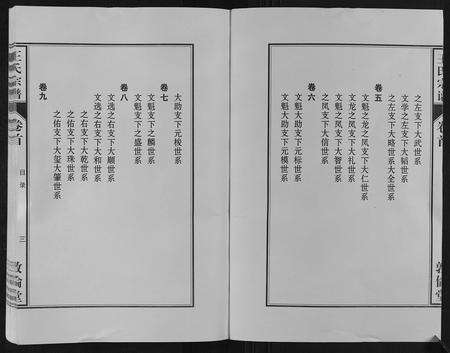 王氏宗谱
卷首
敦伦堂
之左支下大武世系
文学之左支下大韬世系
文魁支下大略世系大全世系
卷五
文魁之龙之凤支下大仁世系
文龙之凤支下大礼世系
文魁之凤支下大智世系
之凤支下大信世系
卷六
文魁大助支下元标世系
文魁大助支下元模世系
大助支下元梭世系
卷七
文魁支下之麟世系
文魁支下之盛世系
卷八
文选之右支下大顺世系
文选之右支下大和世系
之右支下大乾世系
之佑支下大珠世系
之佑支下大玺大肇世系
卷九
王氏宗谱
卷首
目录
三
敦伦堂